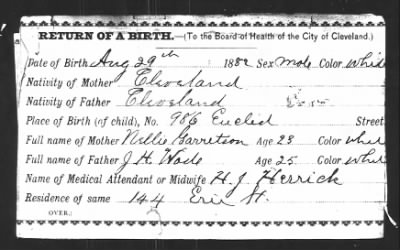 RETURN OF A BIRTH.—(To the Board of Health of the City of Cleveland.)
Date of Birth Aug 29th 1882 Sex Male Color White
Nativity of Mother Cleveland
Nativity of Father Cleveland
Place of Birth (of child), No. 986 Euclid Street
Full name of Mother Nellie Garretson Age 23 Color White
Full name of Father J. H. Wade Age 25 Color White
Name of Medical Attendant or Midwife H. J. Herrick
Residence of same 144 Erie St.
OVER.]